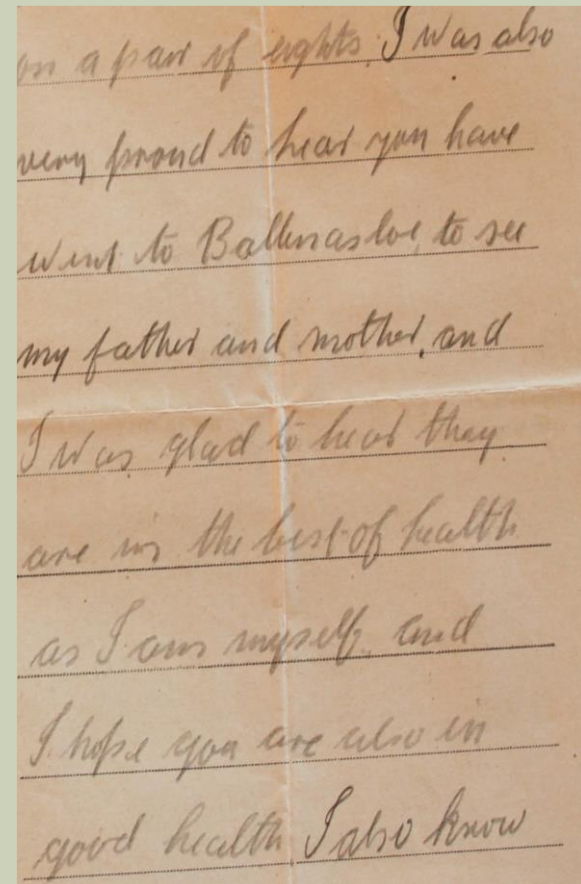 on a pair of eights. I was also
very proud to hear you have
went to Ballinasloe, to see
my father and mother, and
I was glad to hear they
are in the best of health
as I am myself, and
I hope you are also in
good health I also know